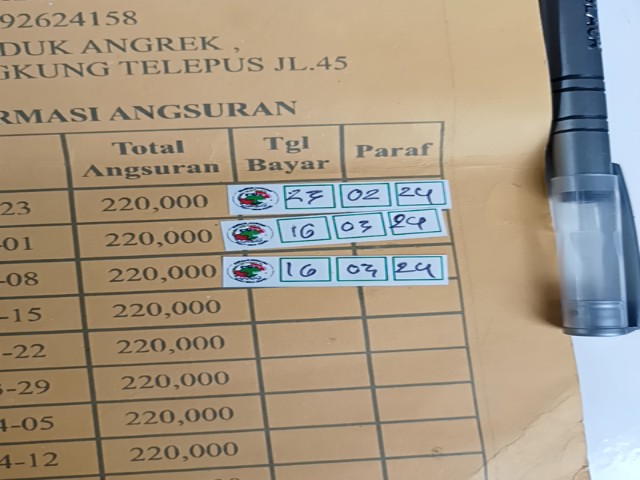 92624158
DUK ANGREK ,
GKUNG TELEPUS JL.45
RMASI ANGSURAN
Total Angsuran Tgl Bayar Paraf
23 220,000 23 02 24
-01 220,000 16 03 24
-08 220,000 16 03 24
-15 220,000
-22 220,000
-29 220,000
4-05 220,000
4-12 220,000